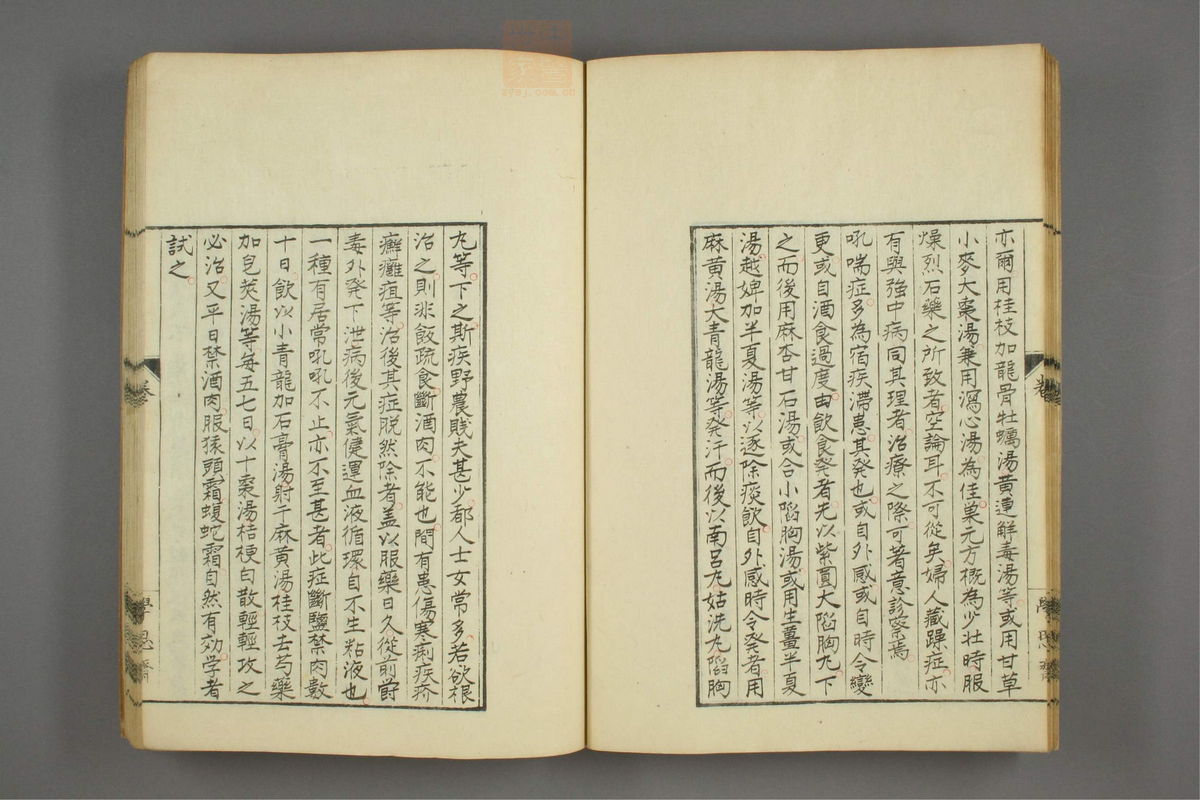 亦爾用桂枝加龍骨牡蠣湯黃連解毒湯等或用甘草
小麥大棗湯兼用瀉心湯為佳巢元方概為少壯時服
燥烈石藥之所致者空論耳不可從矣婦人藏躁症亦
有與強中病同其理者治療之際可著意診察焉
吼喘症多為宿疾滯患其發也或自外感或自時令變
更或自酒食過度由飲食発者先以紫圓大陷胸丸下
之而後用麻杏甘石湯或合小陷胸湯或用生薑半夏
湯越婢加半夏湯等以逐除痰飲自外感時令発者用
麻黃湯大青龍湯等発汗而後以南呂丸姑洗丸陷胸
丸等下之斯疾野農賤夫甚少都人士女常多若欲根
治之則非飯疏食斷酒肉不能也間有患傷寒痢疾疥
癬癰疽等治後其症脫然除者蓋以服藥日久從前欝
毒外発下泄病後元氣健運血液循環自不生粘液也
一種有居常吼吼不止亦不至甚者此症斷鹽禁肉數
十日飲以小青龍加石膏湯射干麻黃湯桂枝去芍藥
加皂莢湯等每五七日以十棗湯桔梗白散輕輕攻之
必治又平日禁酒肉服猿頭霜蝮蛇霜自然有効学者
試之
卷
學思齋